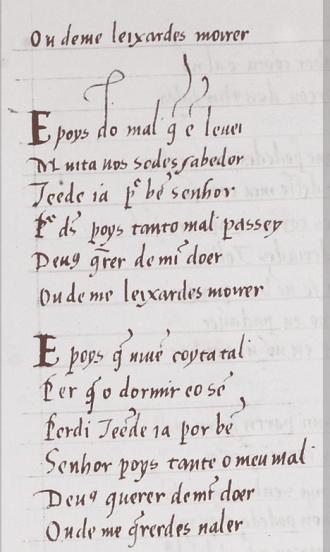 Ou deme leixardes moirer
E poys do mal q̄ é levei
Muita vos sodes sabedor
Teede ia pr̄ bē senhor
Pr̄ ds̄ poys tanto mal passey
Deus q̄rer de mī doer
Ou de me leixardes moirer
E poys q̄ vivē coyta tal
Per q̄ o dormir e o sē
Perdi Teede ia por bē
Senhor poys tante o meu mal
Deus querer de mī doer
Ou de me q̄rerdes valer